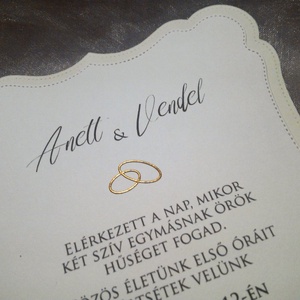 Anett & Vendel
ELÉRKEZETT A NAP, MIKOR
KÉT SZÍV EGYMÁSNAK ÖRÖK
HŰSÉGET FOGAD.
ÖZÖS ÉLETÜNK ELSŐ ÓRÁIT
TSÉTEK VELÜNK
2-ÉN